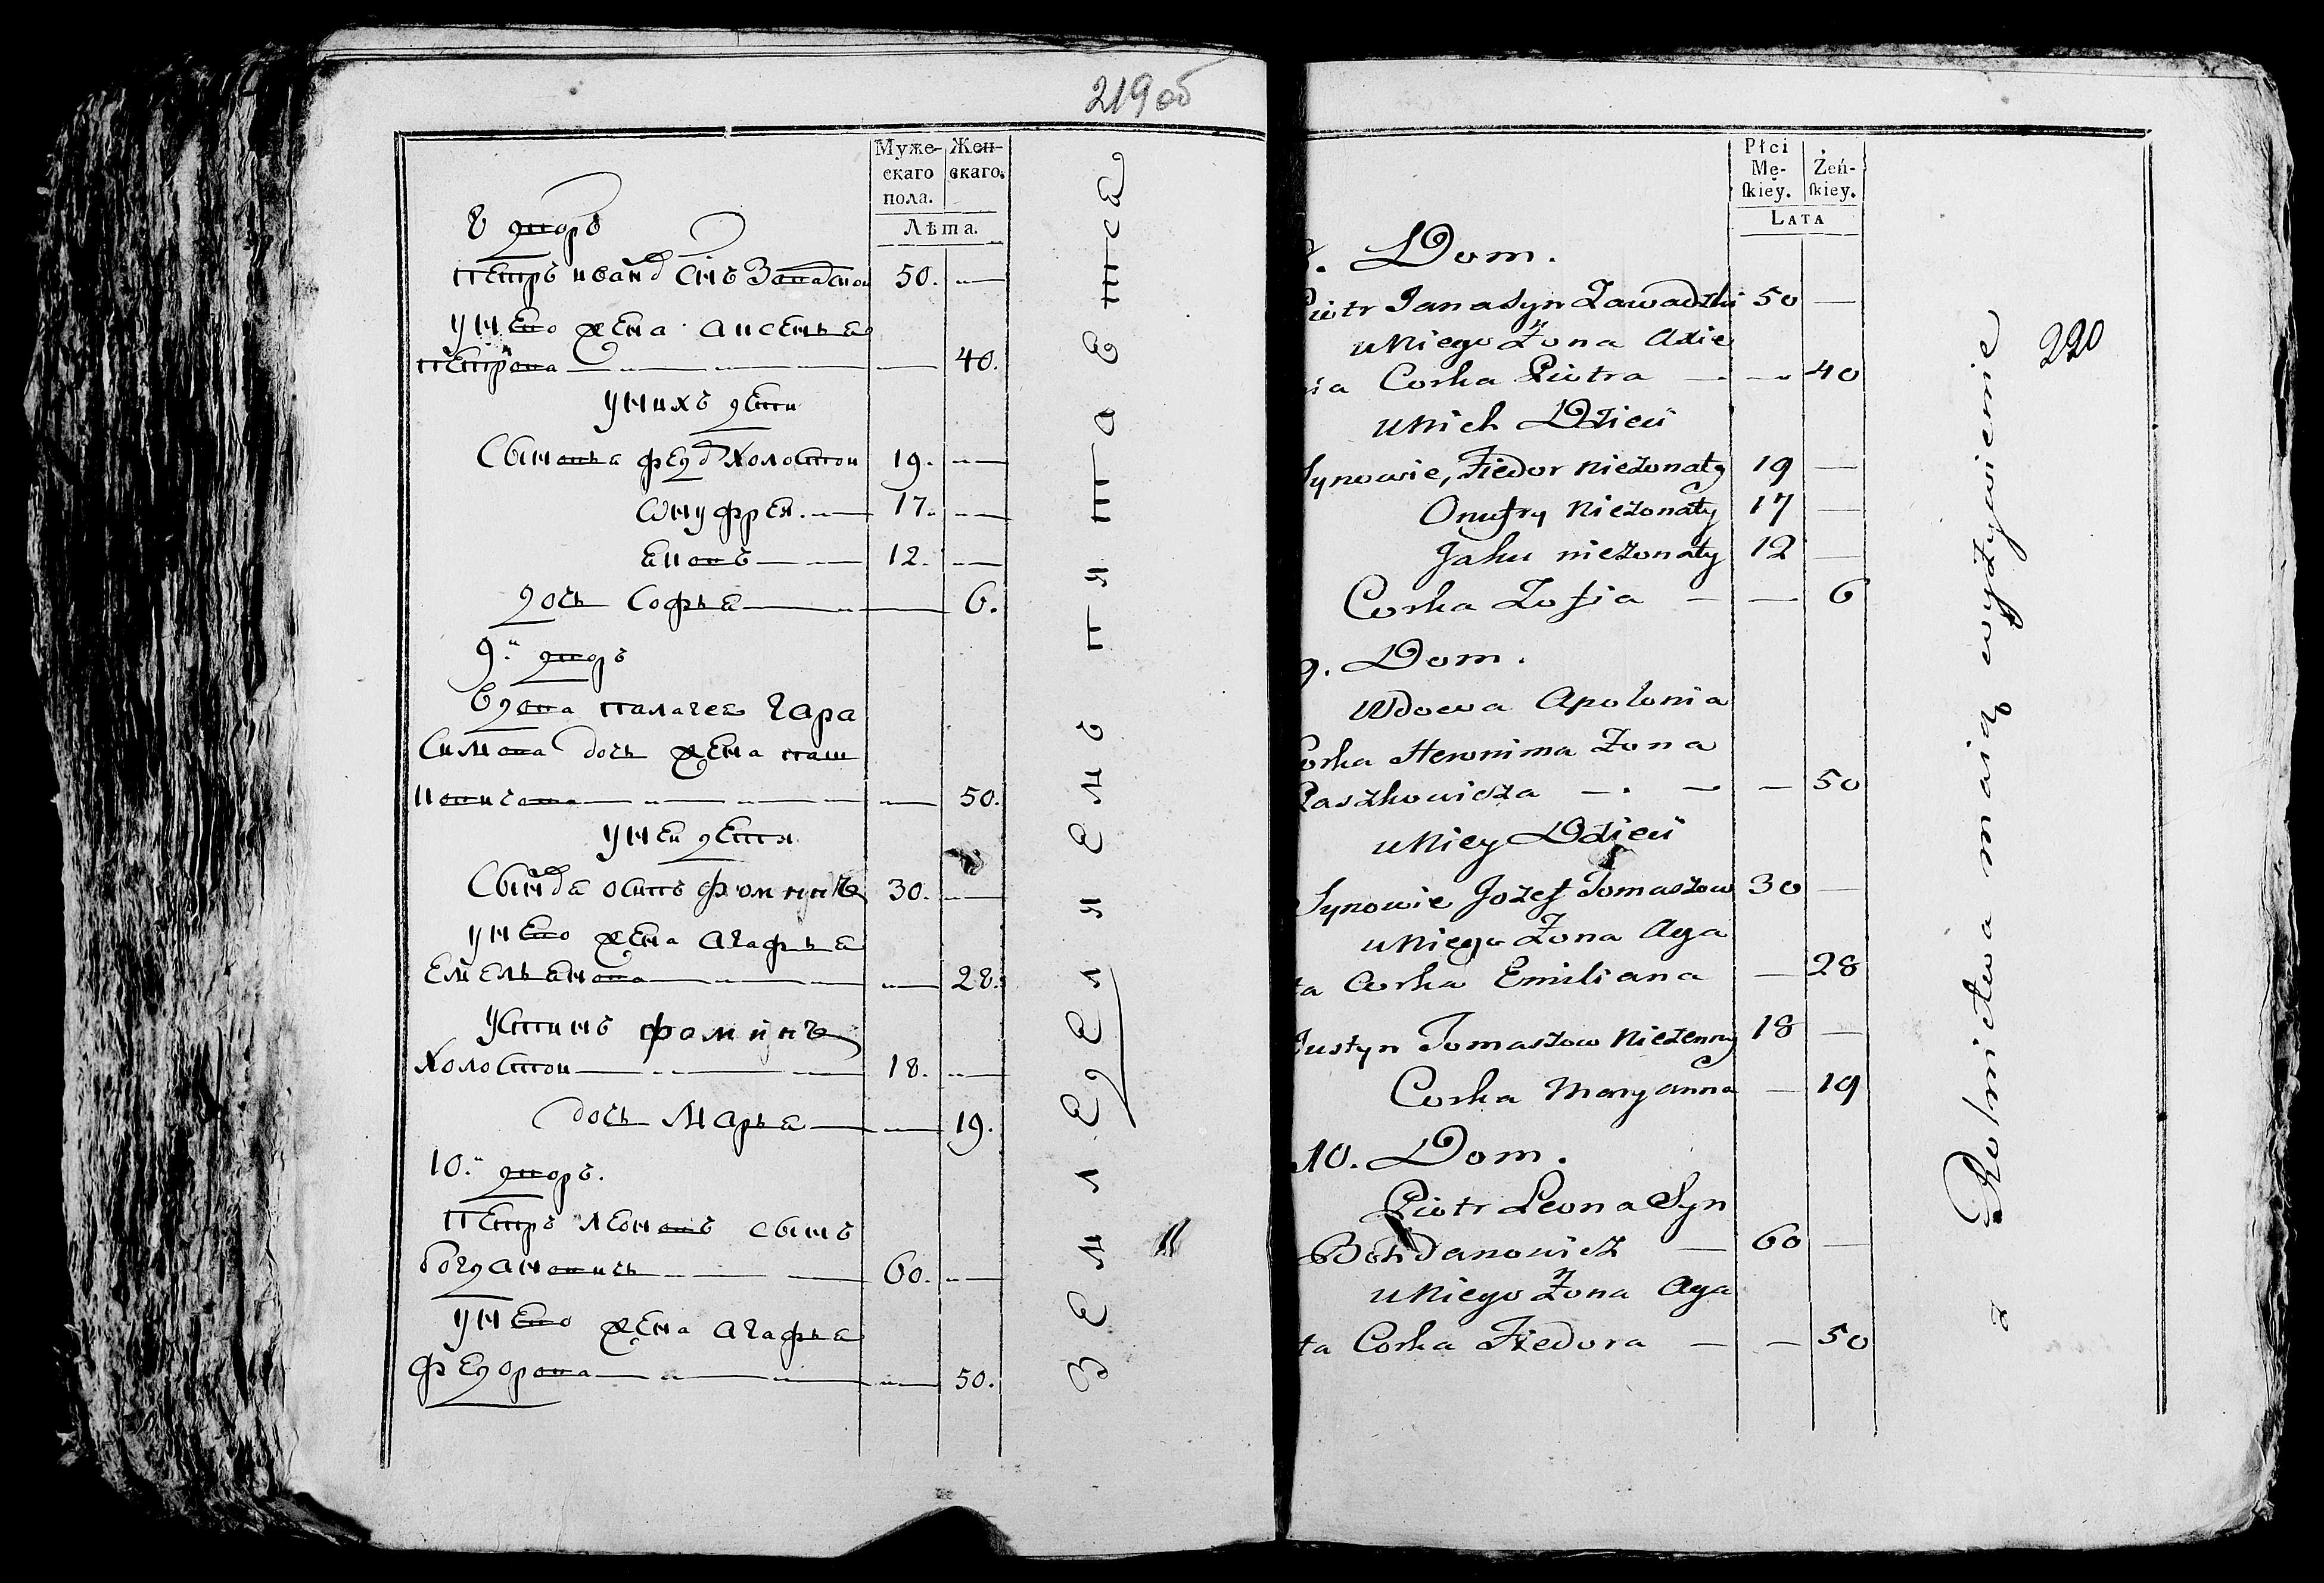 219 об
Муже-
скаго
пола.
Жен-
скаго.
Лѣта.
8 дворъ
Петръ Иванов Снъ Завадской 50.
У него жена Аксенья
Петрова 40.
У них дети
Сыновья Фед Холостой 19.
Онуфрей 17.
Яковъ 12.
дочь Софья 6.
9.й дворъ
Вдова Палагея Гара
Симова дочь жена Паш
ковичова 50.
У ней детей
Сыновя Осипъ Фоминъ 30.
У него жена Агафья
Емельянова 28.
Устинъ Фоминъ
Холостой 18.
дочь Марья 19.
10.й дворъ.
Петръ Леоновъ сынъ
Богдановичь 60.
У него жена Агафья
Федорова 50.
Земледелием пятается
220
Płci
Mę-
skiey.
Żeń-
skiey.
LATA
8. Dom.
Piotr Jana Syn Zawadzki 50
u Niego Żona Axie
nia Corka Piotra 40
u Nich Dzieci
Synowie, Fiedor nieżonaty 19
Onufry Nieżonaty 17
Jaku nieżonaty 12
Corka Zofia 6
9. Dom.
Wdowa Apolonia
Corka Heronima Żona
Paszkowicza 50
u Niey Dzieci
Synowie Jozef Tomaszow 30
u Niego Żona Aga
ta Corka Emiliana 28
Justyn Tomaszow Nieżenny 18
Corka Maryanna 19
10. Dom.
Piotr Leona Syn
Bohdanowicz 60
u Niego Żona Aga
ta Corka Fiedora 50
z Rolnictwa maią wyżywienie